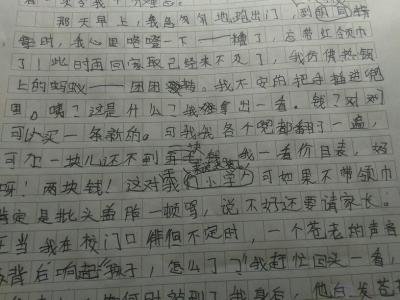 那天早上,我匆匆匆地跑出门,到
时,我心里咯噔一下——糟了,忘带红领巾
了!此时再回家取已经来不及了,我仿佛热锅
上的蚂蚁——团团转。我不安的把手插进兜
里。嗯?这是什么?我拿出一看。钱?对对
可以买一条新的。可我找各个兜都翻了一遍,
可加一块儿还不到 钱,我一看价目表,好
呀!两块钱!这对我们小学 可如果不带领巾
肯定是批头盖脸一顿骂,说不好还要请家长。
正当我在校门口徘徊不定时,一个苍老的声音
背后响起"孩子,怎么了?"我赶忙回头一看,
我身后,他白发苍